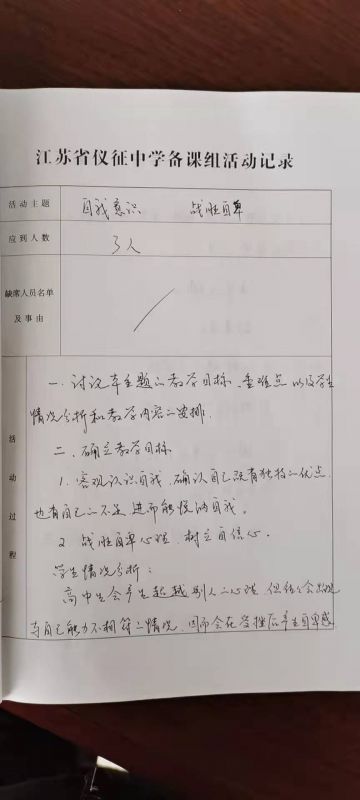 江苏省仪征中学备课组活动记录
活动主题 自我意识 战胜自卑
应到人数 3人
缺席人员名单
及事由
活动过程
一、讨论本主题的教学目标、重难点以及学生
情况分析和教学内容的安排.
二、确立教学目标
1. 客观认识自我,确认自己既有独特的优点,
也有自己的不足,进而能悦纳自我。
2. 战胜自卑心理,树立自信心。
学生情况分析:
高中生会产生超越别人的心理,但往往会出现
与自己能力不相符的情况,因而会在受挫后产生自卑感